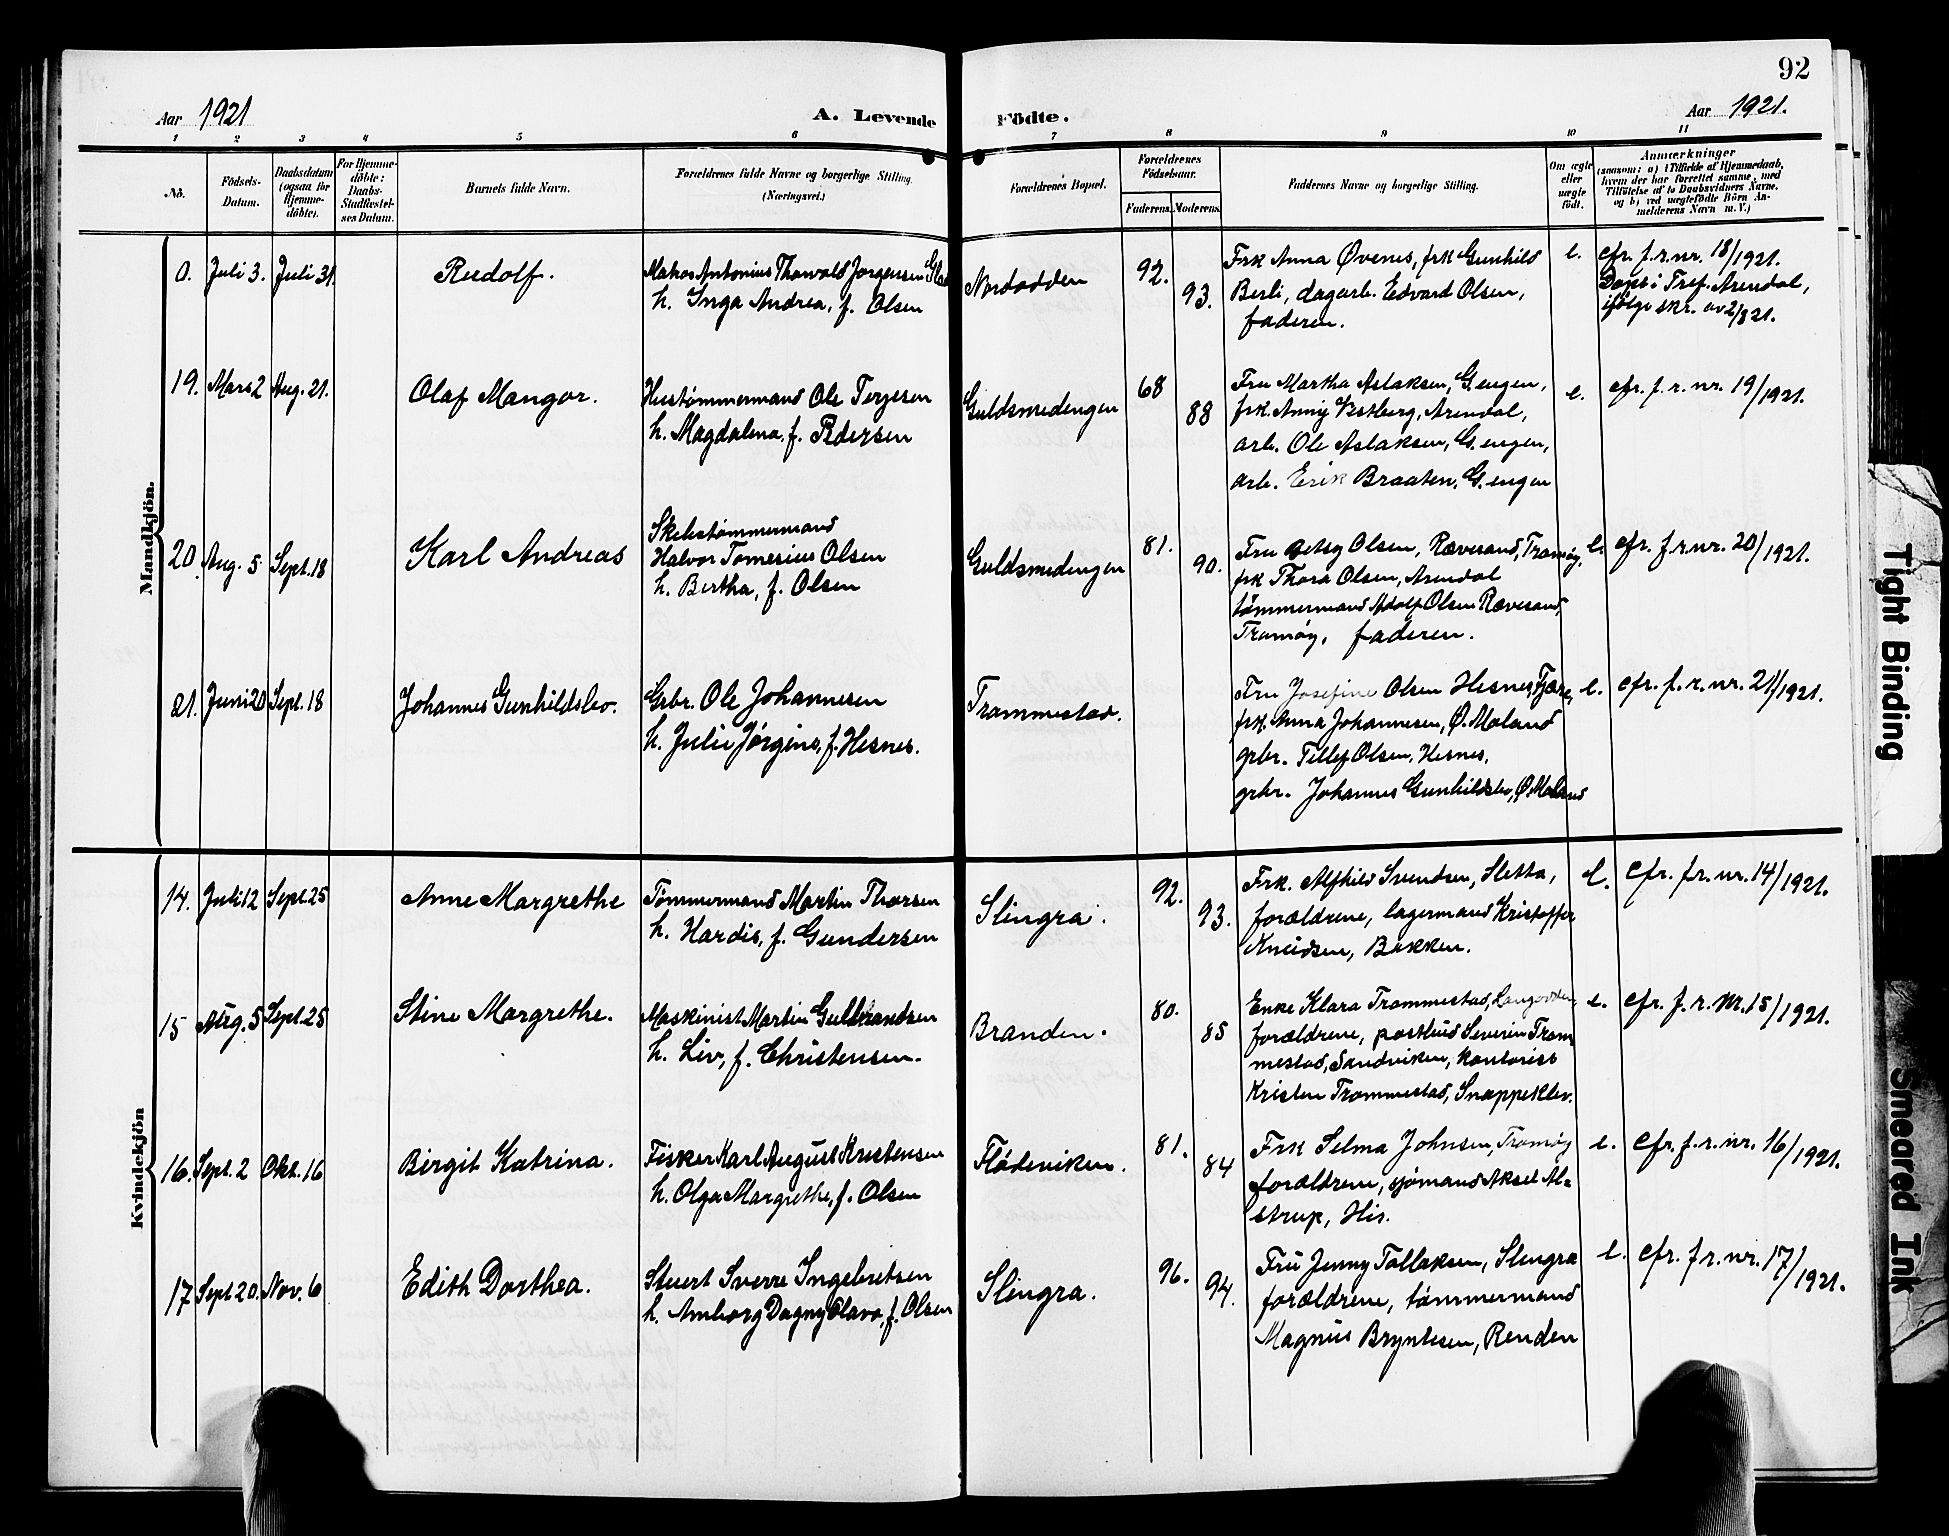 92
Aar 1921
A. Levende Födte.
Aar 1921.
1 2 3 4 5 6 7 8 9 10 11
No.
Födsels-Datum.
Daabsdatum (ogsaa for Hjemme-döbte).
For Hjemme-döbte: Daabs-Stadfæstel-ses Datum.
Barnets fulde Navn.
Forældrenes fulde Navne og borgerlige Stilling. (Næringsvei.)
Forældrenes Bopæl.
Forældrenes Födselsaar.
Faderens. Moderens.
Faddernes Navne og borgerlige Stilling.
Om ægte eller uægte födt.
Anmærkninger
(saasom: a) i Tilfælde af Hjemmedaab, hvem der har forrettet samme, med Tilföielse af to Daabsvidners Navne, og b) ved uægtefödte Börn An-melderens Navn m. V.)
Mandkjön.
0. Juli 3. Juli 31. Rudolf.
Matros Antonius Thorvald Jørgensen
h. Inga Andrea, f. Olsen
Nordodden 92. 93.
Frk Anna Øvenes, frk Gunhild
Berli, dagarb. Edvard Olsen,
faderen.
e. cfr. f.r.nr. 18/1921.
Døpt i Tref. Arendal,
ifølge skr. av 2/8 21.
19. Mars 2 Aug. 21. Olaf Mangor.
Hustømmermand Ole Terjesen
h. Magdalena, f. Pedersen
Guldsmedengen 68 88
Fru Martha Aslaksen, G.engen,
frk. Anny Vestberg, Arendal,
arb. Ole Aslaksen, G.engen,
arb. Erik Braaten, G.engen
e. cfr. f.r.nr. 19/1921.
20. Aug. 5 Sept. 18 Karl Andreas
Skibstømmermand
Halvor Tomesius Olsen
h. Bertha, f. Olsen
Guldsmedengen 81. 90.
Fru Betsy Olsen, Rævesand, Tromøy,
frk Thora Olsen, Arendal
tømmermand Adolf Olsen Rævesand,
Tromøy, faderen.
e. cfr. f.r.nr. 20/1921.
21. Juni 20 Sept. 18 Johannes Gunhildsbo.
Grbr. Ole Johannesen
h. Julie Jørgine, f. Hesnes.
Trommestad.
Fru Josefine Olsen Hesnes, Fjære,
frk. Anna Johannesen, Ø. Moland
grbr. Tellef Olsen, Hesnes.
grbr. Johannes Gunhildsbo, Ø. Moland
e. cfr. f.r.nr. 21/1921.
Kvindekjön
14. Juli 12 Sept. 25 Anne Margrethe
Tømmermand Martin Thorsen
h. Hardis, f. Gundersen
Slingra. 92. 93.
Frk. Alfhild Svendsen, Sletta,
forældrene, lagermand Kristoffer
Knudsen, Bakken.
e. cfr. f.r.nr. 14/1921.
15 Aug. 5 Sept. 25 Stine Margrethe.
Maskinist Martin Gulbrandsen
h. Liv, f. Christensen.
Branden. 80. 85
Enke Klara Trommestad,
forældrene, postbud Severin Trom-
mestad, Sandviken, kontorist
Kristen Trommestad, Snappeklev.
e. cfr. f.r.nr. 15/1921.
16. Sept. 2 Okt. 16 Birgit Katrina.
Fisker Karl August Kristensen
h. Olga Margrethe, f. Olsen
Flødeviken. 81. 84
Frk Selma Johnsen, Tromøy
forældrene, sjømand Aksel Al=
strup, His.
e. cfr. f.r.nr. 16/1921.
17 Sept 20. Nov. 6 Edith Dorthea.
Stuert Sverre Ingebretsen
h. Amborg Dagny Olava, f. Olsen
Slingra. 96. 94.
Fru Jenny Tollaksen, Slingra
forældrene, tømmermand
Magnus Bryntesen, Renden
e. cfr. f.r.nr. 17/1921.
Tight Binding
Smeared Ink